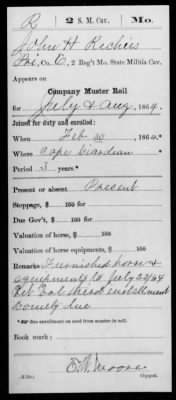 R | 2 S. M. Cav. | Mo.
John H Rechies
Pri, Co. E, 2 Reg't Mo. State Militia Cav.
Appears on
Company Muster Roll
for July & Aug, 1864.
Joined for duty and enrolled:
When Feb 20, 186
Where Cape Girardeau
Period 3 years.*
Present or absent Present
Stoppage, $ 100 for
Due Gov't, $ 100 for
Valuation of horse, $ 100
Valuation of horse equipments, $ 100
Remarks: Furnished horse &
equipments to July 22/64
Vet enlistment
Bounty due
*See enrollment on card from muster-in roll.
Book mark:
Moore
Copyist.